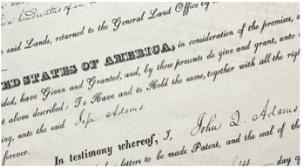 said Lands, returned to the General Land Office by
STATES OF AMERICA, in consideration of the premises,
ded, have Given and Granted, and, by these presents do give and grant, unto
above described: To Have and to Hold the same, together with all the righ
ing, unto the said Jesse Adams
forever.
In testimony whereof, I, John Q. Adams
letters to be made Patent, and the seal of the
day of